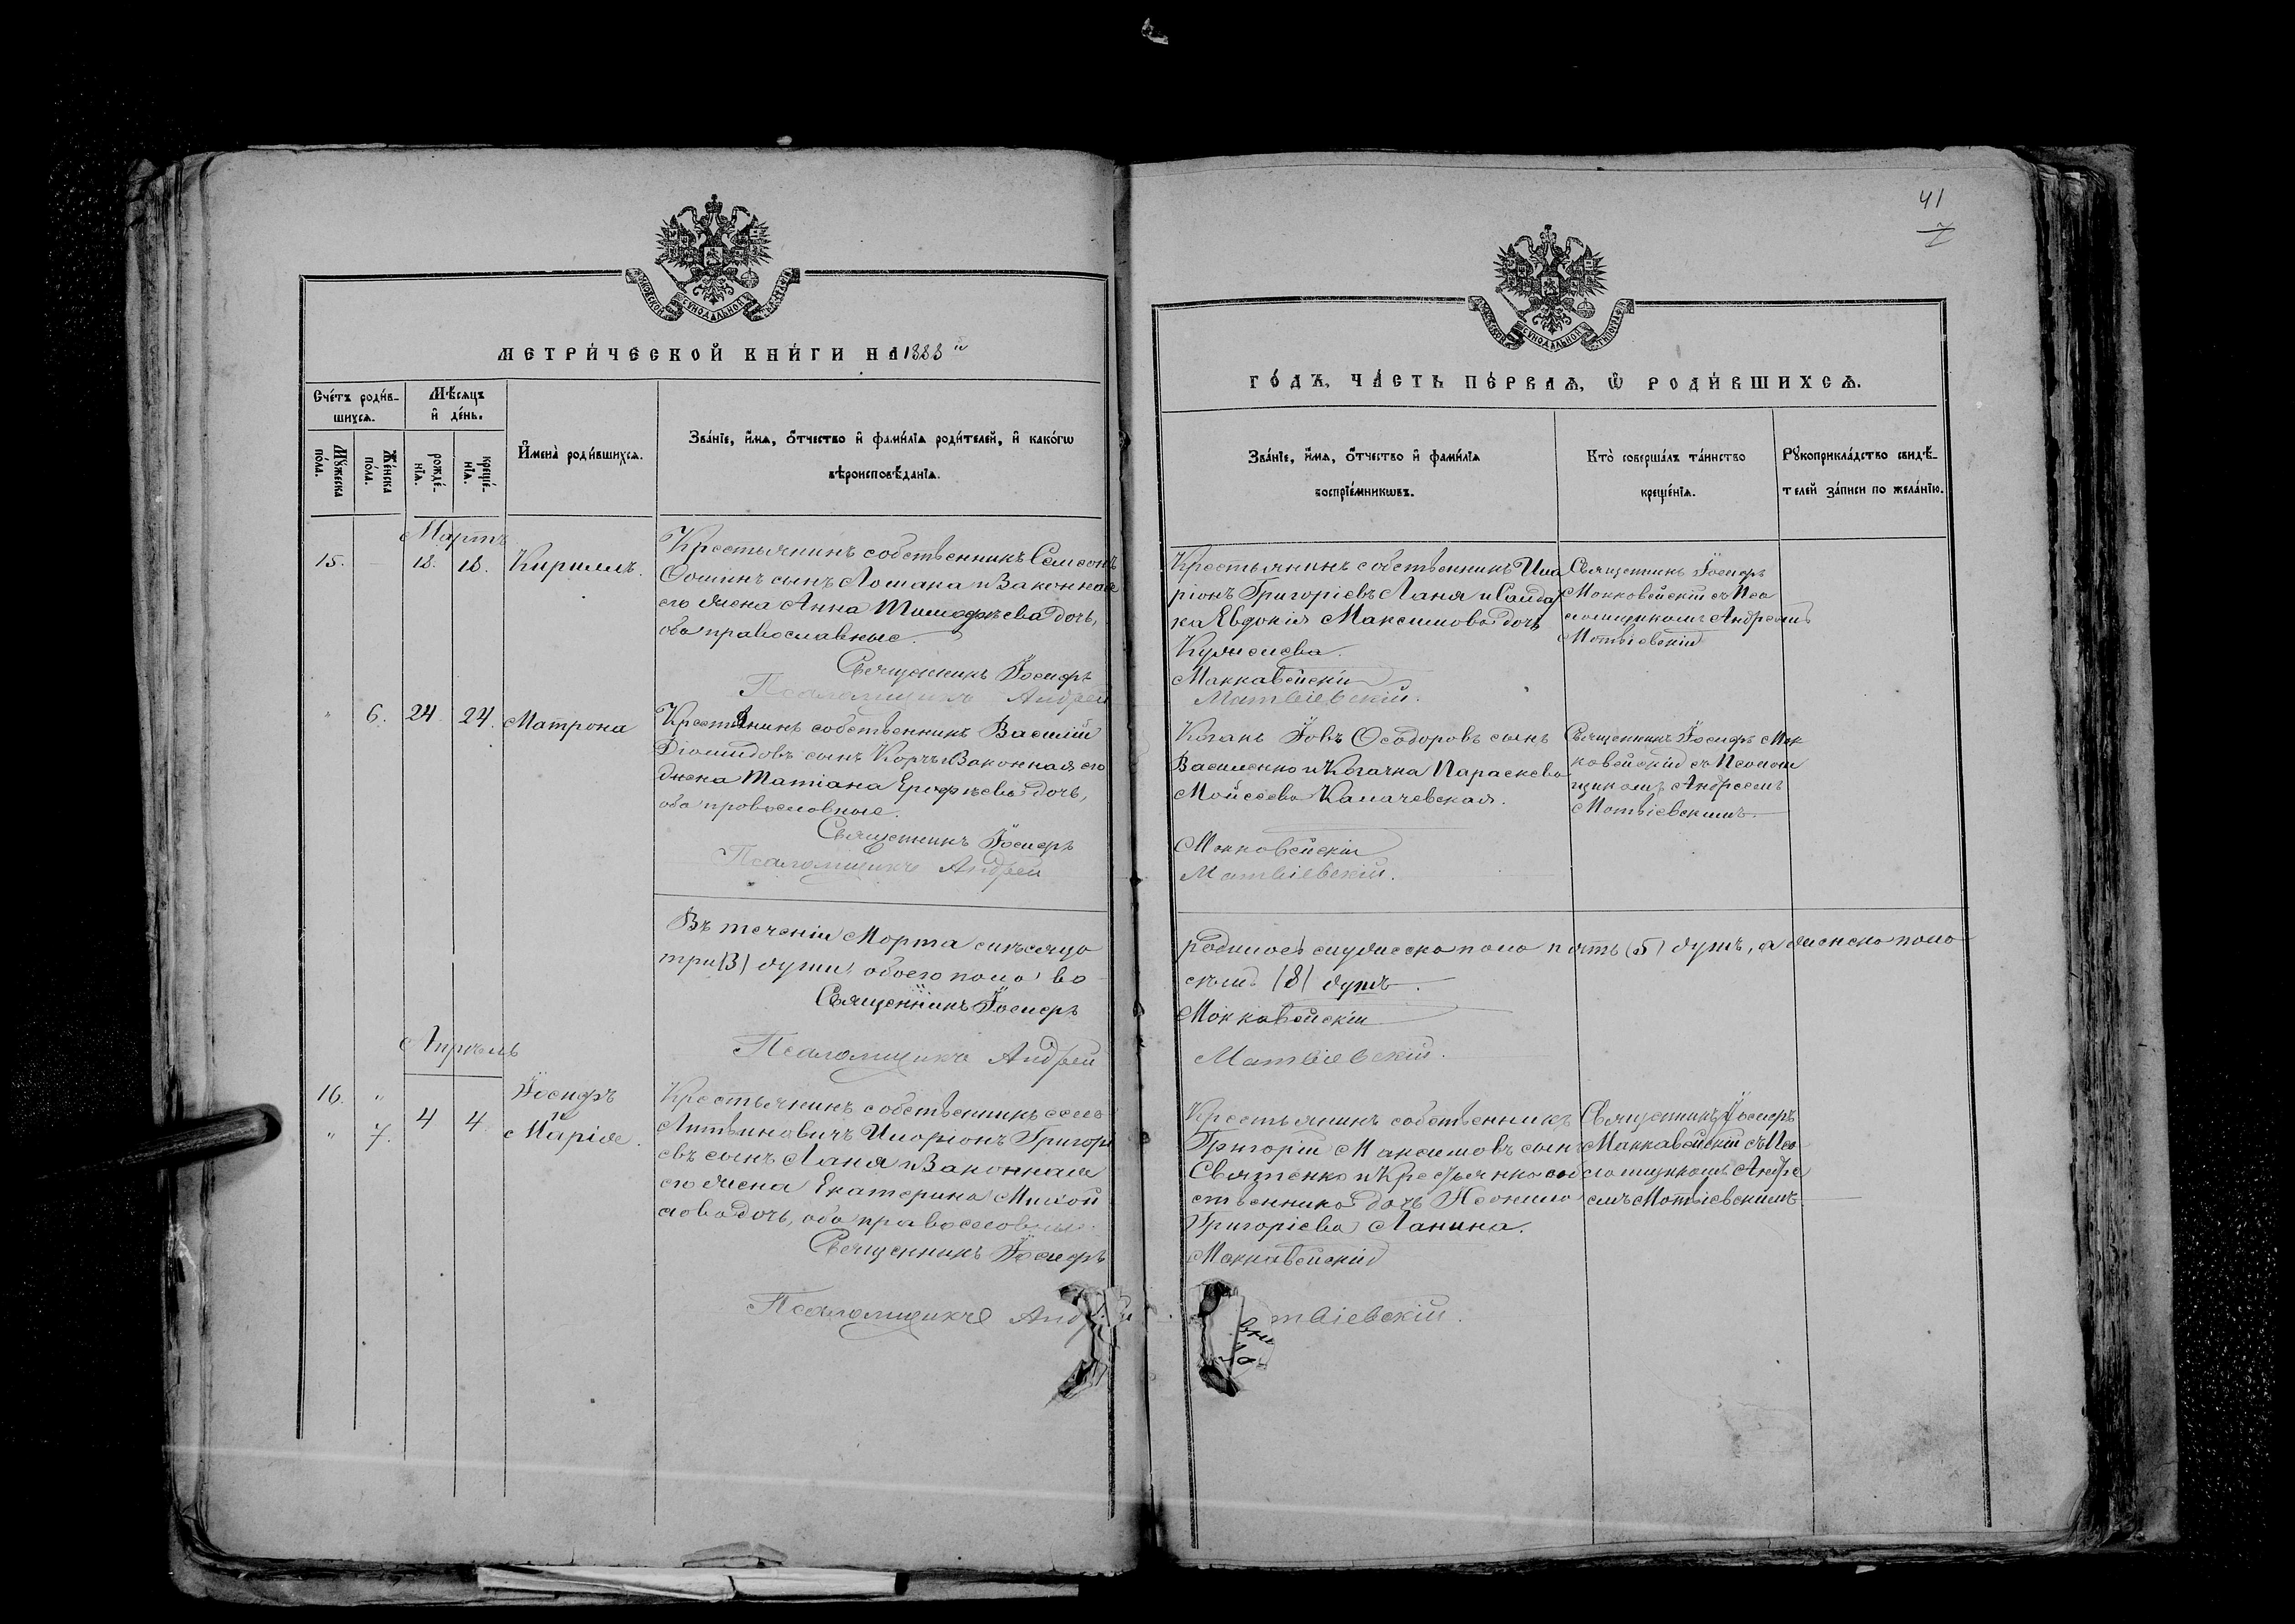 41
МОСКОВСКОЙ СѴНОДАЛЬНОЙ ТИПОГРАФІИ
МЕТРИ́ЧЕСКОЙ КНИ́ГИ НА 1883 й
ГО́ДЪ, ЧА́СТЬ ПЕ́РВАѦ, Ѡ҆ РОДИ́ВШИХСѦ.
Сче́тъ роди́в-
шихся.
Мѣ́сяцъ
и҆ де́нь.
Мꙋ́жеска
по́ла.
Же́нска
по́ла.
рожде́-
нїя.
креще́-
нїя.
И҆мена̀ роди́вшихся.
Зва́нїе, и҆́мя, ѻ҆́тчество и҆ фами́лїѧ роди́телей, и҆ како́гѡ
вѣроисповѣ́данїѧ.
Зва́нїе, и҆́мя, ѻ҆́тчество и҆ фами́лїѧ
воспрїе́мникѡвъ.
Кто̀ соверша́лъ та́инство
креще́нїѧ.
Рꙋкоприкла́дство свидѣ́-
телей за́писи по жела́нїю.
Мартъ
15. 18. 18. Кириллъ.
Крестьянинъ собственникъ Самсонъ
Фоминъ сынъ Ломака и Законная
его жена Анна Тимофѣева дочь,
оба православные.
Священникъ Іосифъ
Псаломщикъ Андрей
Крестьянинъ собственникъ Ила
ріонъ Григоріевъ Ланя и Солдат
ка Евдокія Максимова дочь
Маккавейскій
Матвіевскій.
Священникъ Іосифъ
Маккавейскій съ Пса
ломщикомъ Андреемъ
Матвіевскій
" 6. 24. 24. Матрона
Крестьянинъ собственникъ Василій
Діомидовъ сынъ Корчъ и Законная его
жена Татіана Ерофѣева дочь,
оба православные.
Священникъ Іосифъ
Псаломщикъ Андрей
Козакъ Іовъ Ѳеодоровъ сынъ
Василенко и Козачка Параскева
Мойсеева Калачевская.
Маккавейскій
Матвіевскій.
Священникъ Іосифъ Мак
кавейскій съ Псалом
щикомъ Андреемъ
Матвіевскимъ.
Въ теченіи Марта мѣсяца
родилось мужеска пола пять (5) душъ, а женска пола
три (3) души, обоего пола во
семь (8) душъ.
Священникъ Іосифъ
Маккавейскій
Псаломщикъ Андрей
Матвіевскій.
Апрѣль
16. " Іосифъ
и
4 4
" 7. Марія.
Крестьянинъ собственникъ села
Литвиновичъ Иларіонъ Григорі
евъ сынъ Ланя и Законная
его жена Екатерина Михай
лова дочь, оба православные.
Священникъ Іосифъ
Псаломщикъ Андрей
Крестьянинъ собственникъ
Григорій Максимовъ сынъ
Святенко и Крестьянка соб
ственника дочь
Григоріева Ланина.
Маккавейскій
твіевскій.
Священникъ Іосифъ
Маккавейскій съ Пса
ломщикомъ Андре
емъ Матвіевскимъ